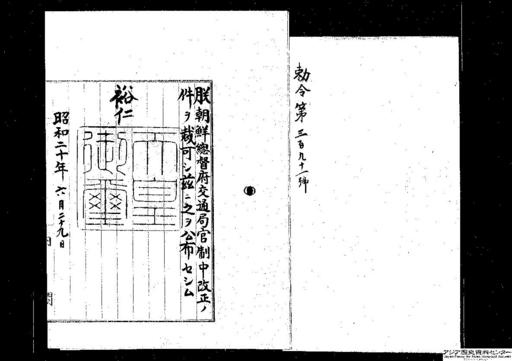 勅令第三百九十一号
朕朝鮮総督府交通局官制中改正ノ
件ヲ裁可シ茲ニ之ヲ公布セシム
裕仁
天皇御璽
昭和二十年六月二十九日
アジア歴史資料センター
Japan Center for Asian Historical Records